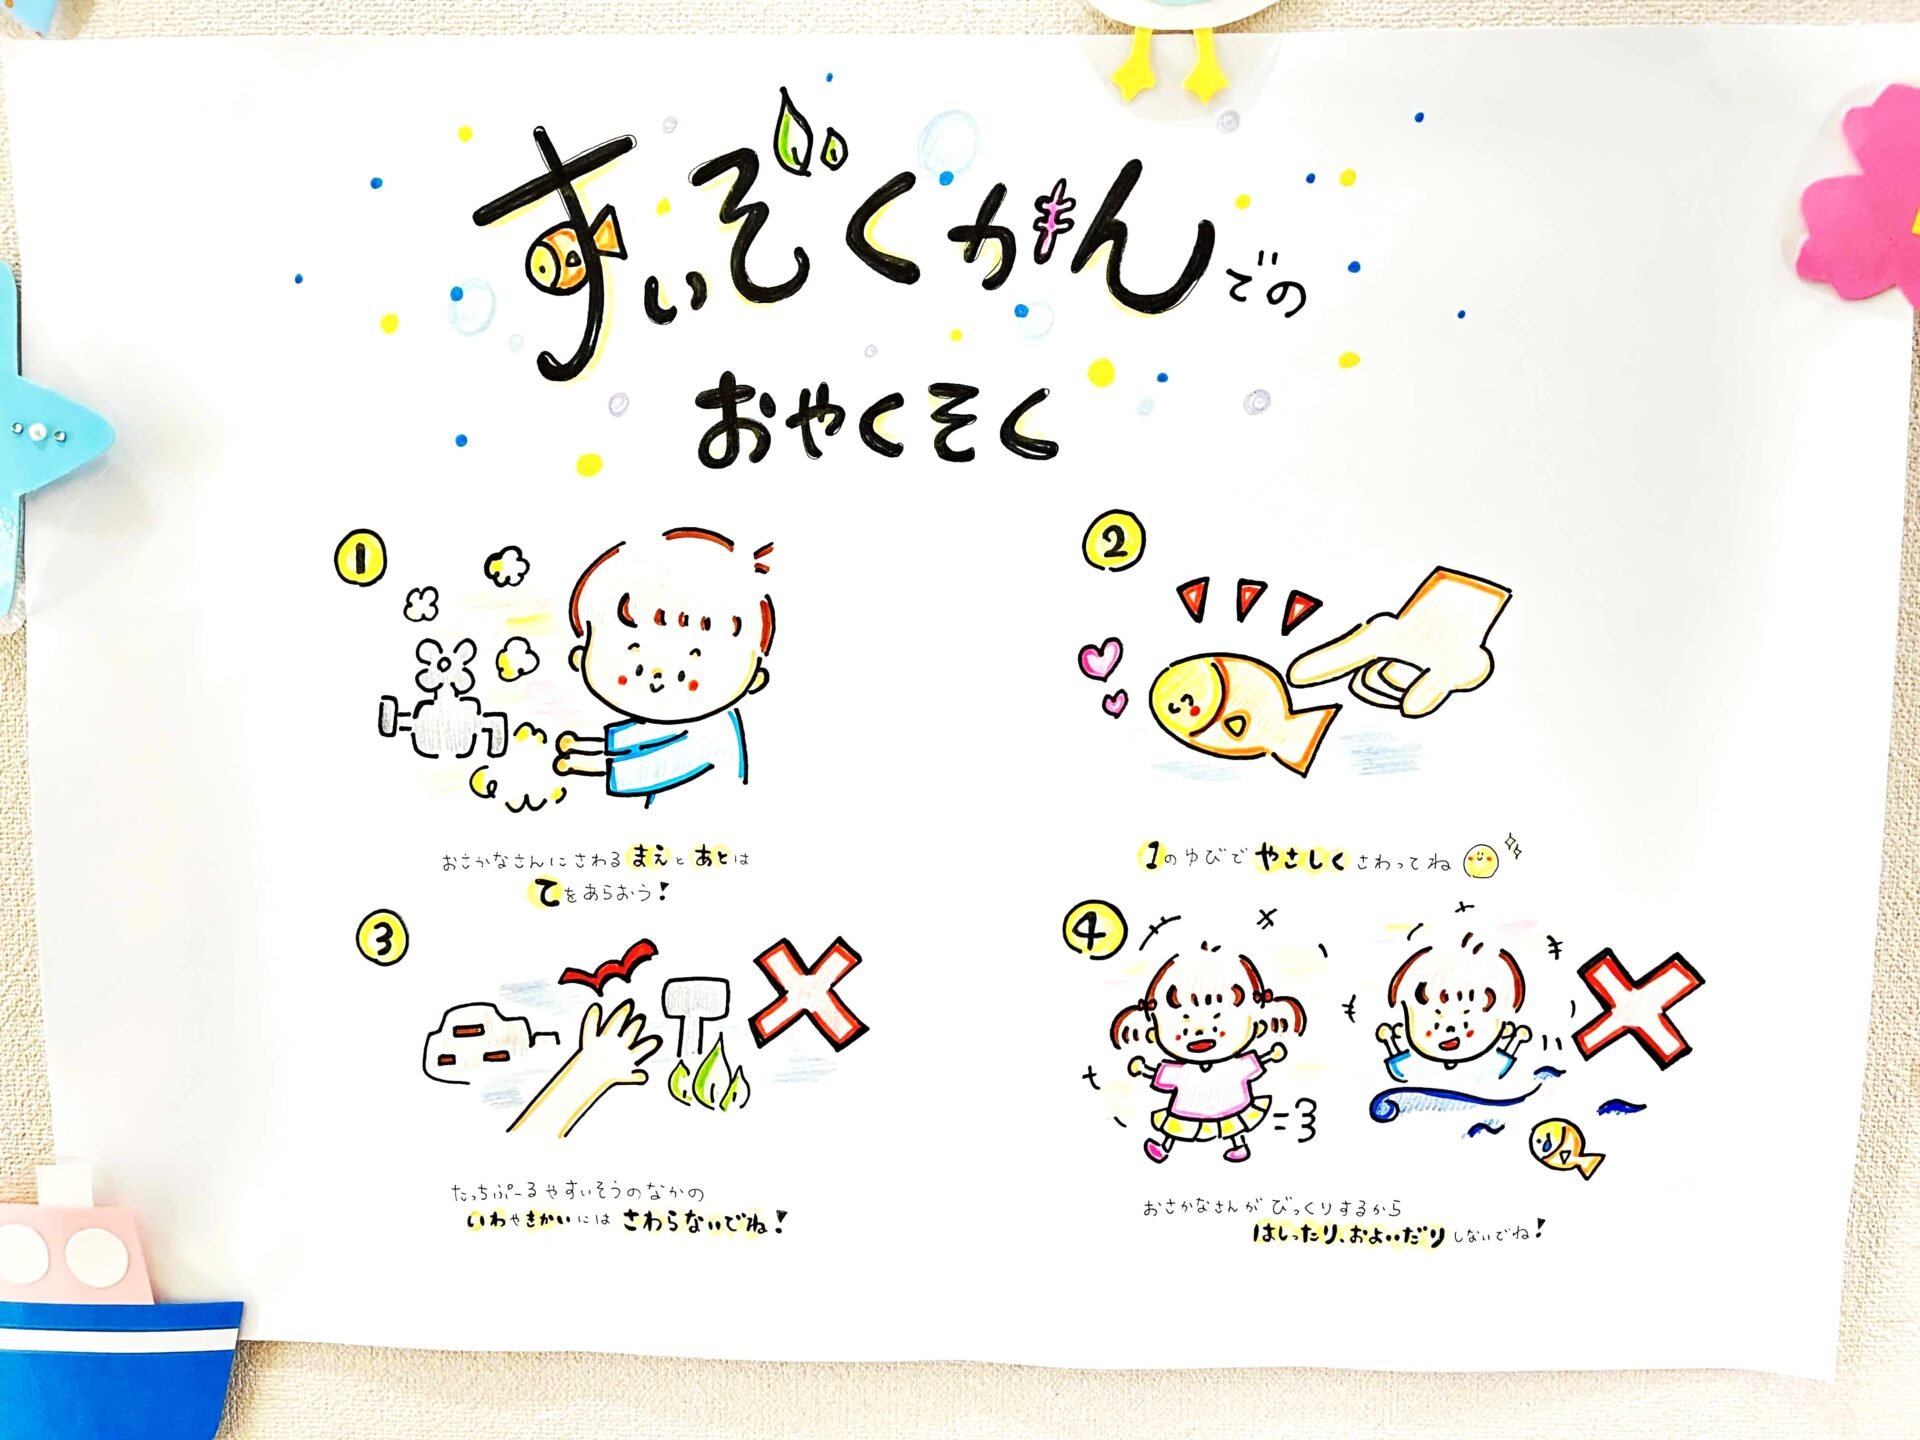 すいぞくかんでの
おやくそく
1
おさかなさんにさわるまえとあとは
てをあらおう!
2
1のゆびでやさしくさわってね
3
たっちぷーるやすいそうのなかの
いわやきかいにはさわらないでね!
4
おさかなさんがびっくりするから
はしったり、およいだりしないでね!